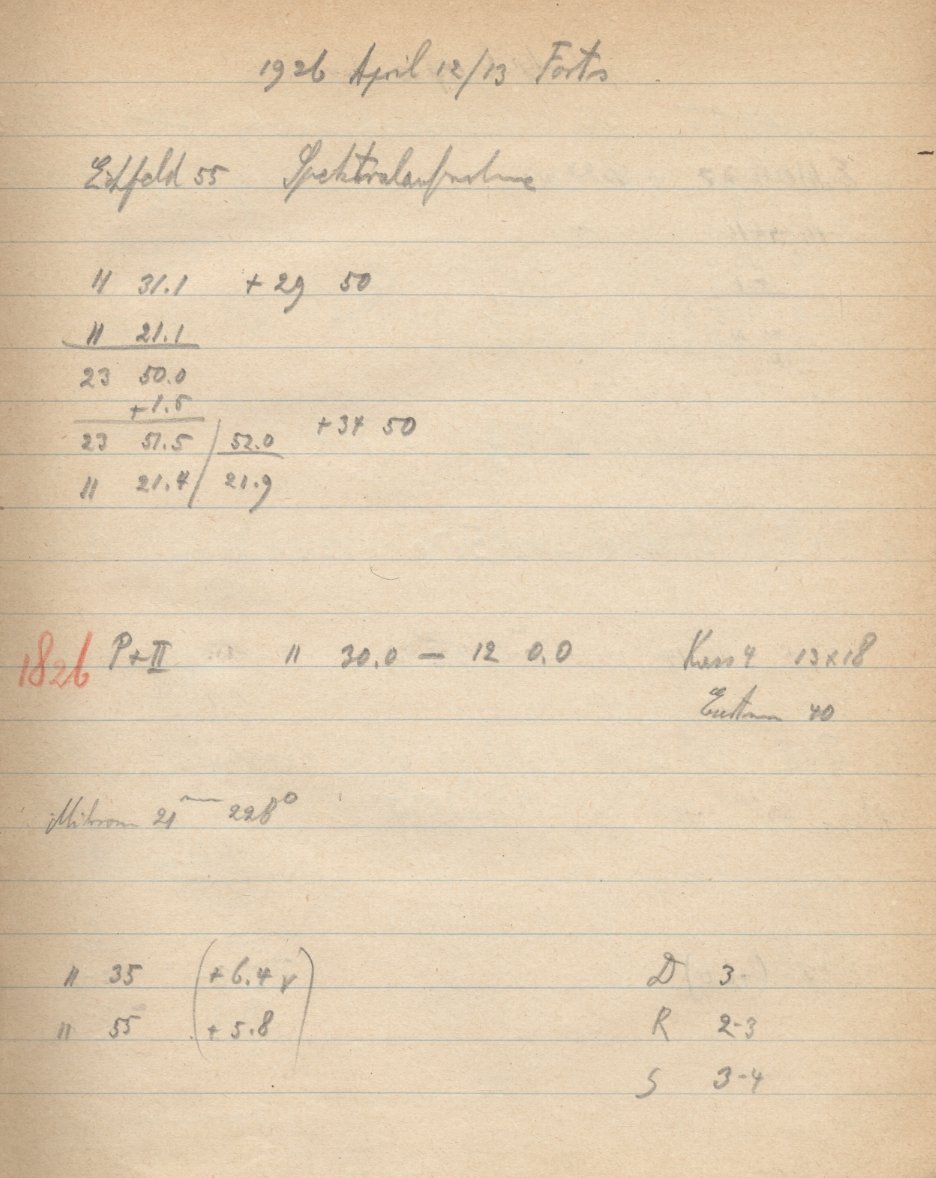 1926 April 12/13 Forts
Eichfeld 55 Spektralaufnahme
11 31.1 + 29 50
11 21.1
23 50.0
+1.5
23 51.5 / 52.0 +34 50
11 21.4 / 21.9
1826 P+II 11 30.0 – 12 0.0 Kass 4 13x18
Eastman 40
Mikrom 21 228°
11 35 (+6.4
11 55 + 5.8)
D 3-
R 2-3
S 3-4